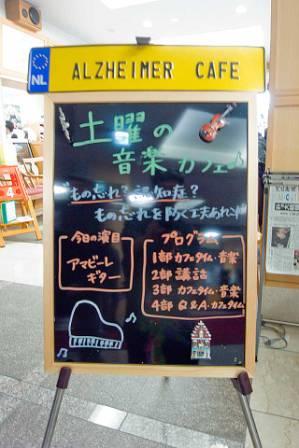 NL
ALZHEIMER CAFE
土曜の
音楽カフェ♪
もの忘れ? 認知症?
もの忘れを防ぐ工夫あれこれ
今日の演目
アマビーレ
ギター
プログラム
1部 カフェタイム・音楽
2部 講話
3部 カフェタイム・音楽
4部 Q&A・カフェタイム